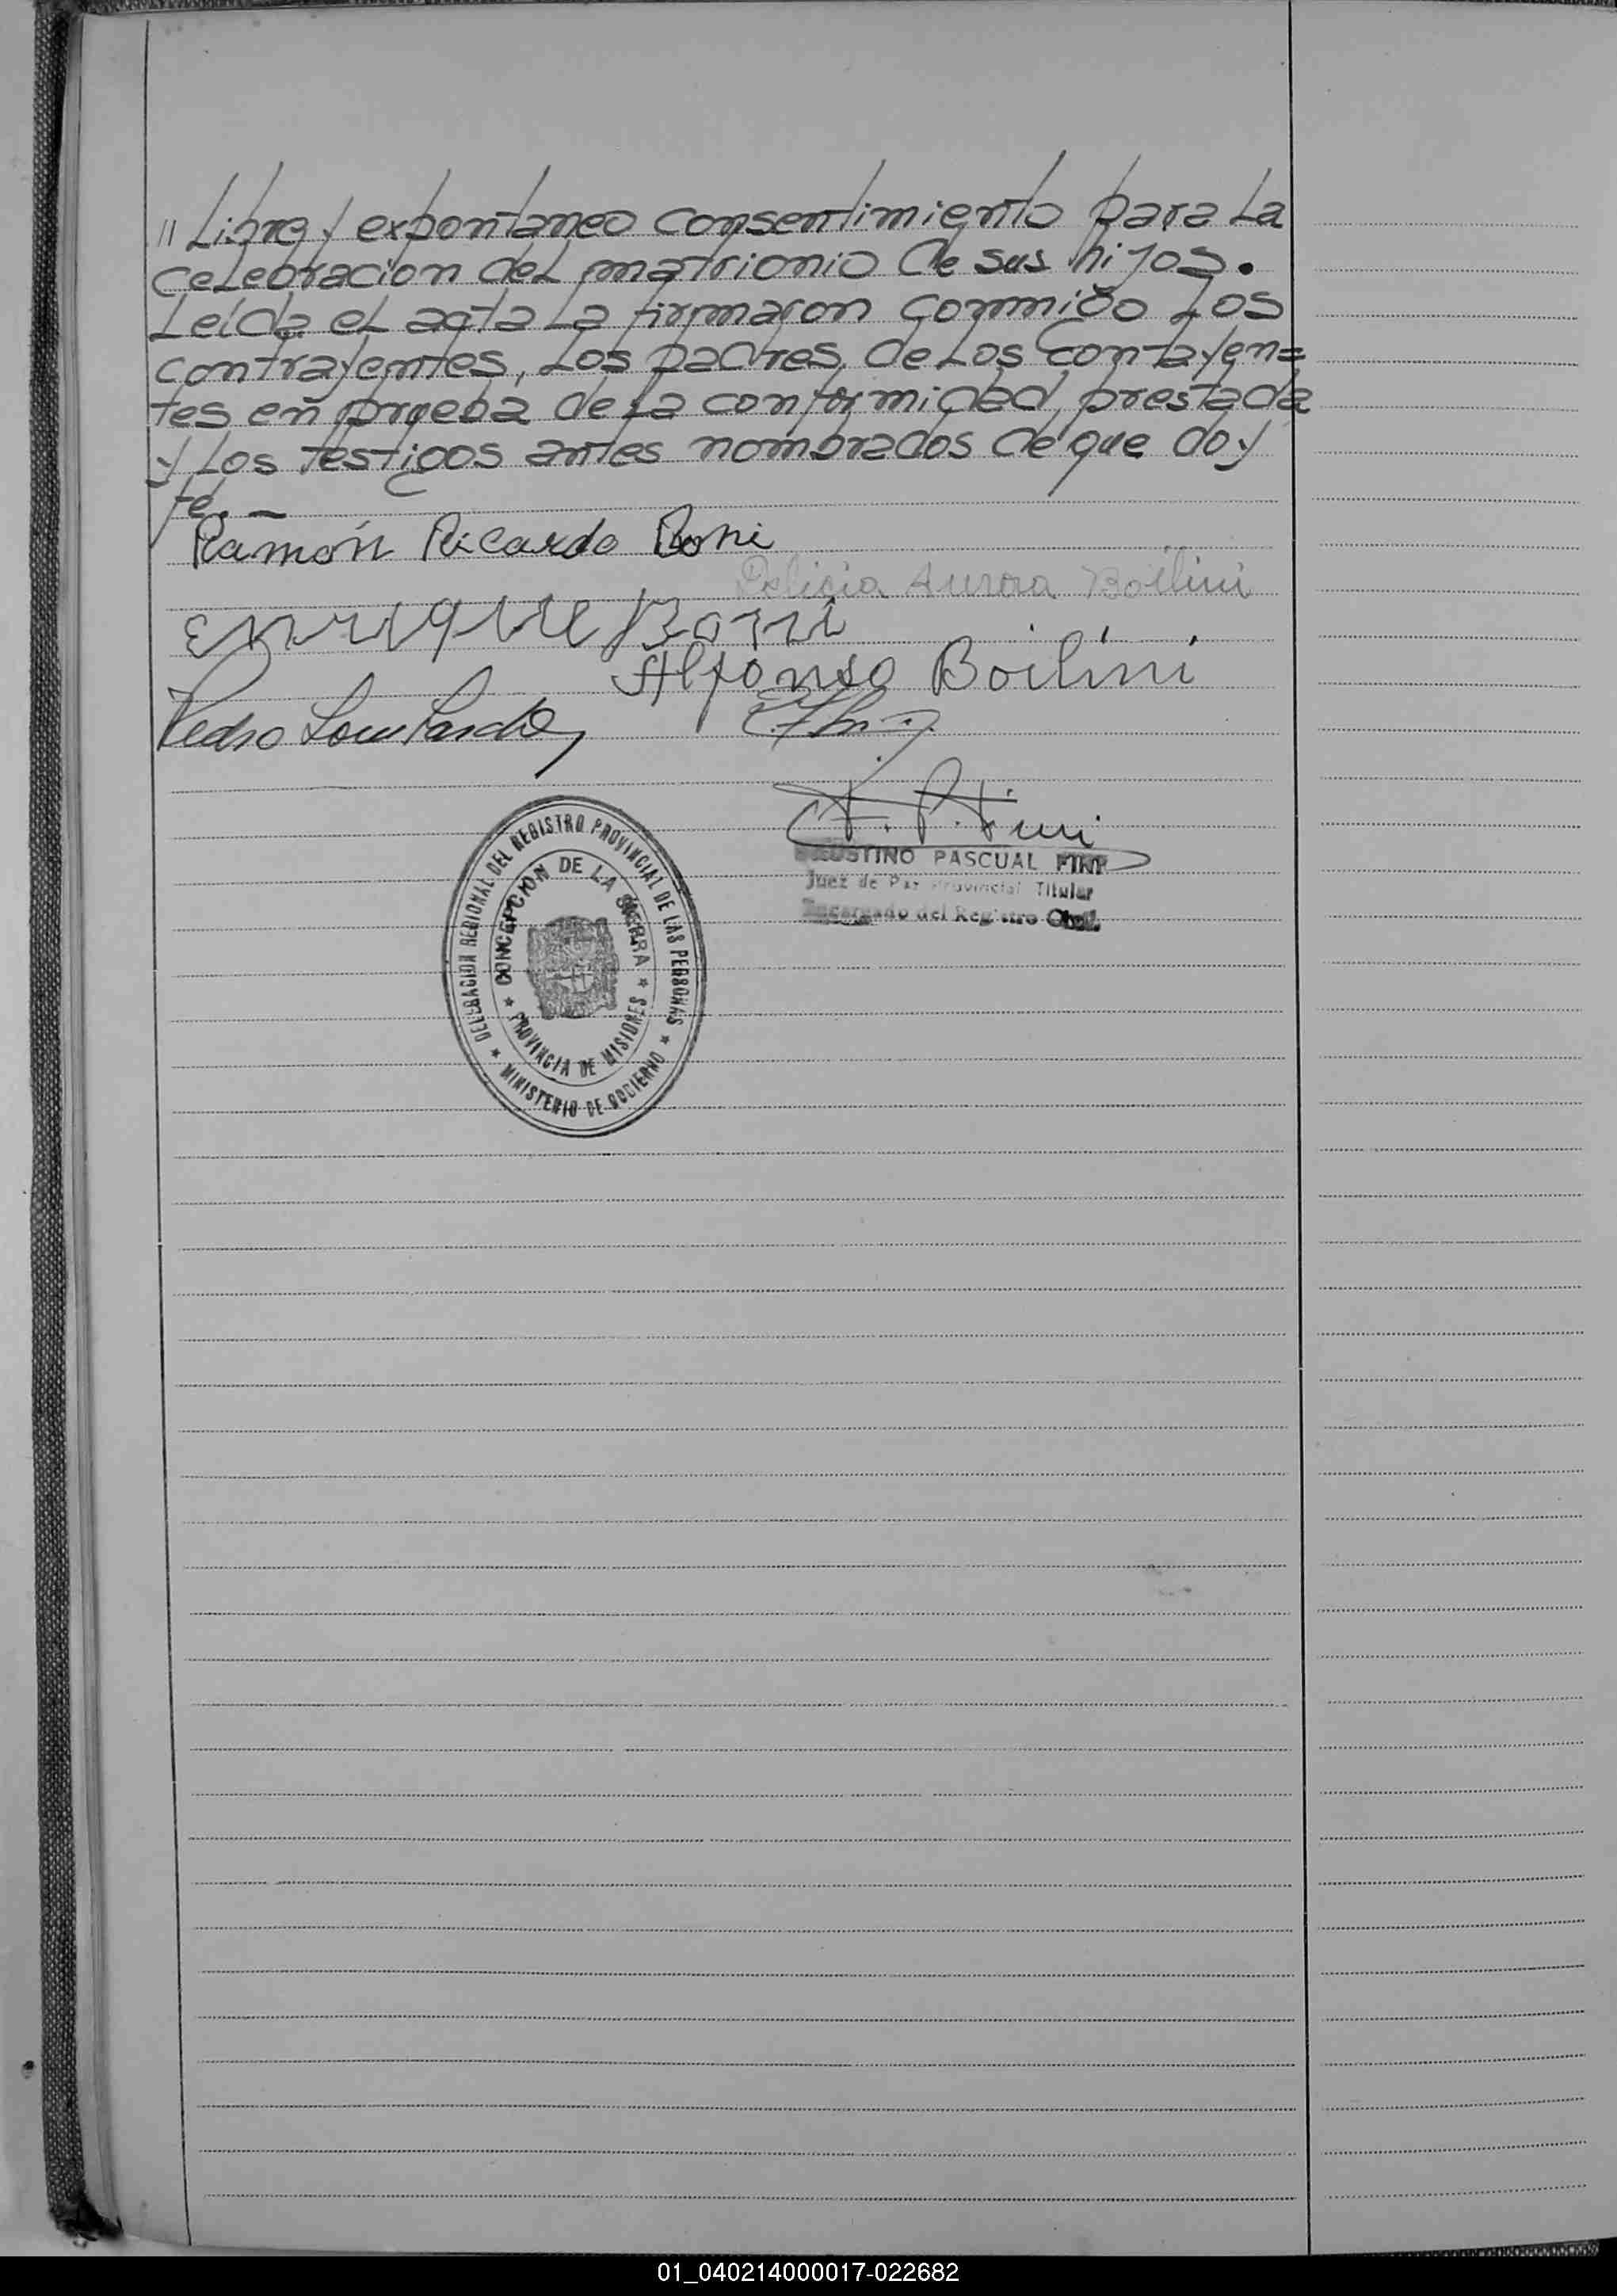 " Libre y expontaneo consentimiento para La
celebracion del matrionio de sus hijos.
Leída el acta La firmaron conmigo Los
contrayentes, Los padres de Los contayen=
tes en prueba de La conformidad, prestada
y Los testigos antes nombrados de que doy
fe. —
Ramón Ricardo Boni
Delicia Aurora Boilini
enrrique Bonni
Alfonso Boilini
Pedro Lombardo
A. P. Fini
PASCUAL FINI
Juez de Paz Provincial Titular
Encargado del Registro Civil
DELEGACION REGIONAL DEL REGISTRO PROVINCIAL DE LAS PERSONAS
CONCEPCION DE LA SIERRA
PROVINCIA DE MISIONES
MINISTERIO DE GOBIERNO
01_040214000017-022682